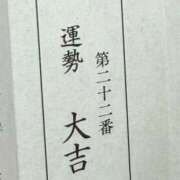 第二十二番
運勢 大吉